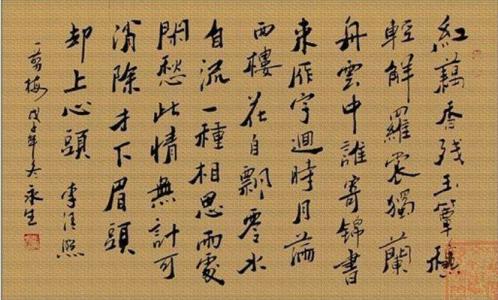 紅藕香残玉簟穐
輕解羅裳獨蘭
舟雲中誰寄錦書
来雁字迴時月滿
西樓 花自飄零水
自流一種相思兩處
閑愁此情無計可
消除才下眉頭
却上心頭 李清照
一剪梅 戊子年冬 永生